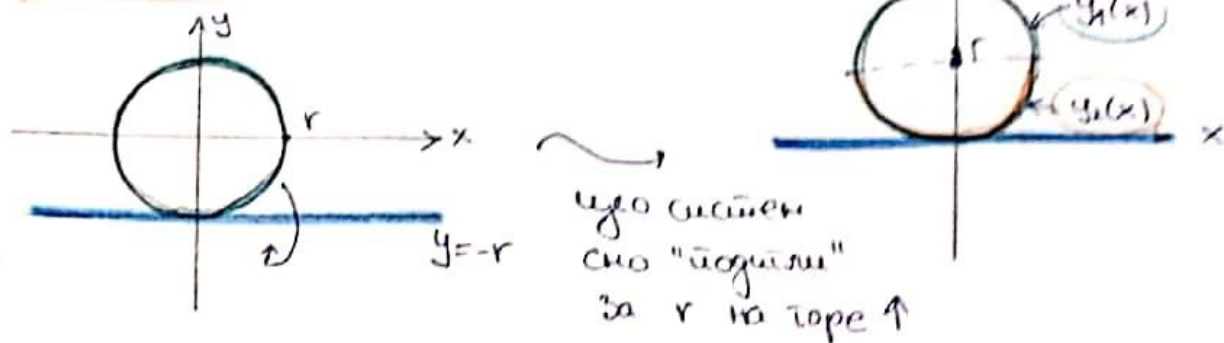 y
r
x
y=-r
цео систем
смо "подигли"
за r на горе ↑
r
y₁(x)
y₂(x)
x